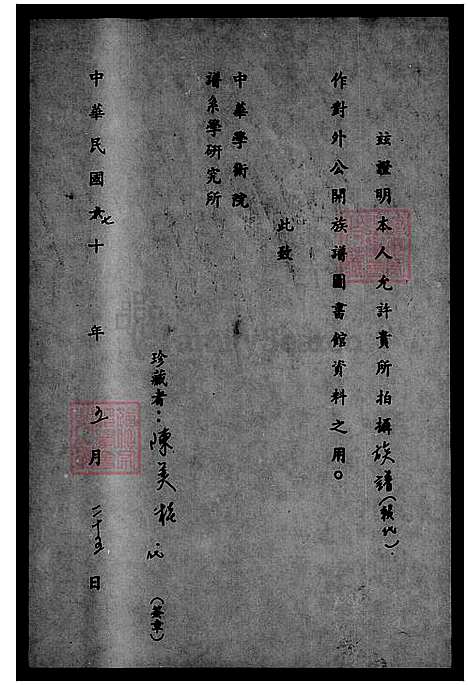 茲證明本人允許貴所拍攝族譜
作對外公開族譜圖書館資料之用。
此致
中華學術院
譜系學研究所
珍藏者：陳美 (簽章)
中華民國六十七年五月二十五日